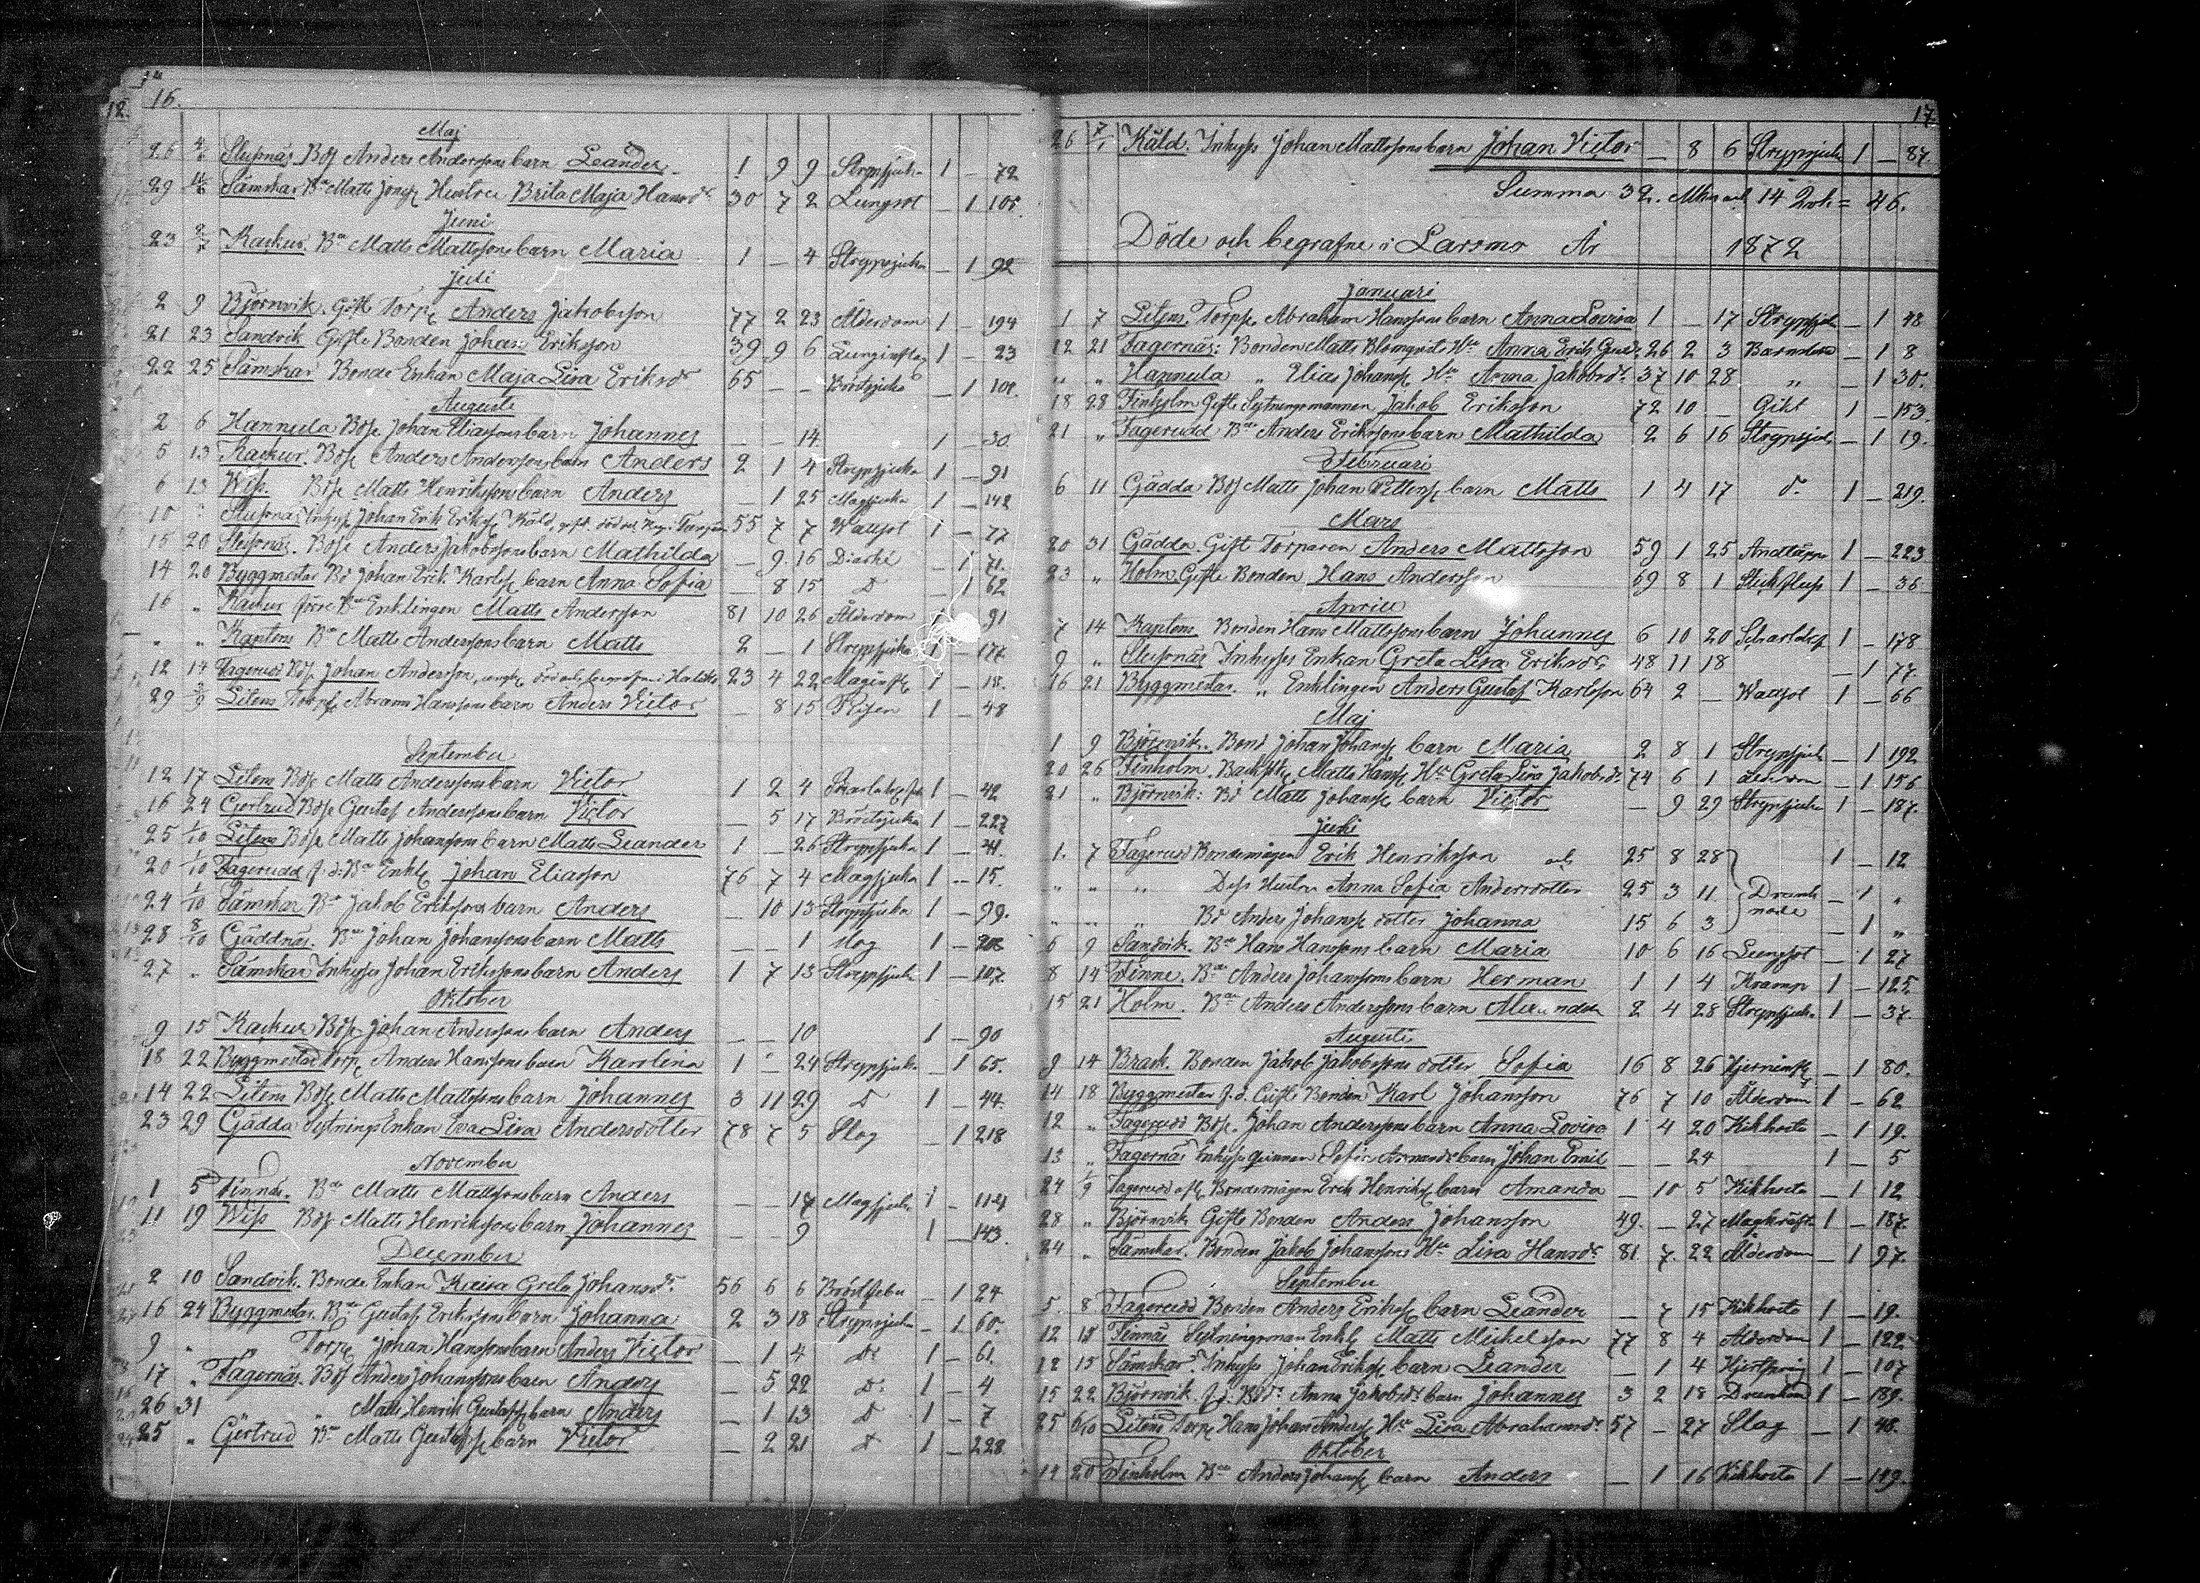 12. 16.
Maj
26 4/6 Slussnäs Bds Anders Anderssons barn Leander 1 9 9 Strypsjuka 1 — 72
29 11/6 Sämskar Bde Matts Jonss Hustru Brita Maja Hansdr 30 7 2 Lungsot — 1 105.
Juni
23 2/7 Kackur Bde Matts Mattssons barn Maria 1 — 4 Strypsjuka — 1 92
Juli
2 9 Björnvik. Gift Torp. Anders Jakobsson 77 2 23 Ålderdom 1 — 194
21 23 Sandvik Gifte Bonden Johan Eriksson 39 9 6 Lunginflag 1 — 23
22 25 Sämskar Bonde Enkan Maja Lisa Eriksdr 65 — — Bröstsjuka — 1 101.
Augusti
2 6 Hannula Bds Johan Eliassons barn Johannes — — 14 1 — 30
5 13 Kackur. Bds Anders Anderssons barn Anders 2 1 4 Strypsjuka 1 — 91
6 13 Wiss Bds Matts Henrikssons barn Anders — 1 25 Magsjuka 1 — 142
10 " Slussnäs Inhyss Johan Erik Erikss Käld, gift 55 7 7 Wattsot 1 — 77
15 20 Slussnäs. Bds Anders Jakobssons barn Mathilda — 9 16 Diarhé — 1 71.
14 20 Byggmestar Bd Johan Erik Karlss barn Anna Sofia — 8 15 D — 1 62
16 " Kackur förre Bde Enklingen Matts Andersson 81 10 26 Ålderdom 1 — 91
" " Kaptens Bde Matts Anderssons barn Matts 2 — 1 Strypsjuka 1 — 177
12 14 Fagerudd Bds Johan Andersson, 23 4 22 Maginfl 1 — 18.
29 Litens Torps Abram Hanssons barn Anders Victor — 8 15 Risen 1 — 48
September
12 17 Litens Bds Matts Anderssons barn Victor 1 2 4 1 — 42
16 24 Gertrud Bds Gustaf Anderssons barn Victor — 5 17 Bröstsjuka 1 — 227
25 1/10 Litens Bds Matts Johanssons barn Matts Leander 1 — 26 Strypsjuka 1 — 41.
20 1/10 Fagerudd f.d. Bde Enkl Johan Eliasson 76 7 4 Magsjuka 1 — 15.
24 1/10 Sämskar Bde Jakob Erikssons barn Anders — 10 13 Strypsjuka 1 — 99.
28 8/10 Gäddnäs. Bde Johan Johanssons barn Matts — — 1 Slag 1 —
27 " Sämskar Inhyses Johan Erikssons barn Anders 1 7 13 Strypsjuka 1 — 107.
Oktober
9 15 Kackur Bds Johan Anderssons barn Anders — — 10 1 — 90
18 22 Byggmestar Torp Anders Hanssons barn Karolina 1 — 24 Strypsjuka — 1 65.
14 22 Litens Bds Matts Mattssons barn Johannes 3 11 29 D 1 — 44.
23 29 Gädda Sytnings Enkan Eva Lisa Andersdotter 78 7 5 Slag — 1 218
November
1 5 Finnäs. Bde Matts Mattssons barn Anders — — 17 Magsjuka 1 — 114
11 19 Wiss Bds Matts Henrikssons barn Johannes — — 9 1 — 143.
December
2 10 Sandvik. Bonde Enkan Kajsa Greta Johansdr 56 6 6 Bröstfeber — 1 24
16 24 Byggmestar. Bde Gustaf Erikssons barn Johanna 2 3 18 Strypsjuka — 1 60.
9 " Torp Johan Hanssons barn Anders Victor — 1 4 Do 1 — 61.
17 " Fagernäs. Bds Anders Johanssons barn Anders — 5 22 D. 1 — 4
26 31 " Matts Henrik Gustafss barn Anders — 1 13 D 1 — 7
25 " Gertrud Bde Matts Gustafss barn Victor — 2 21 D 1 — 228
17
26 7/1 Käld. Inhyses Johan Mattssons barn Johan Victor — 8 6 Strypsjuka 1 — 87.
Summa 32. Mkn och 14 Qvk = 46.
Döde och begrafne i Larsmo År 1872
Januari
1 7 Litens. Torpp. Abraham Hanssons barn Anna Lovisa 1 — 17 Strypsjuk — 1 48
12 21 Fagernäs: Bonden Matts Blomqvists Hu Anna Erik Gust 26 2 3 Barnsbörd — 1 8
" " Hannula " Elias Johanss Hu Anna Jakobsdr 37 10 28 " — 1 30.
18 28 Finholm Gifte Sytningsmannen Jakob Eriksson 72 10 — Gikt 1 — 153
21 " Fagerudd Bde Anders Erikssons barn Mathilda 2 6 16 Strypsjuk — 1 19.
Februari
6 11 Gädda Bds Matts Johan Petterss barn Matts 1 4 17 d. 1 — 219.
Mars
20 31 Gädda. Gift Torparen Anders Mattsson 59 1 25 Andtäppa 1 — 223
23 " Holm. Gifte Bonden Hans Andersson 59 8 1 Stickfluss 1 — 36
Aprill
7 14 Kaptens Bonden Hans Mattssons barn Johannes 6 10 20 1 — 178
9 " Slussnäs Inhyses Enkan Greta Lisa Eriksdr 48 11 18 — 1 77
16 21 Byggmestar. " Enklingen Anders Gustaf Karlsson 64 2 — Wattsot 1 — 66
Maj
1 9 Björnvik. Bond Johan Johanss barn Maria 2 8 1 Strypsjuk — 1 192
20 26 Finholm. Matts Hanss Hu Greta Lisa Jakobsdr 74 6 1 — 1 156
21 " Björnvik: Bd Matts Johanss barn Victor — 9 29 Strypsjuka 1 — 187.
Juli
1. 7 Fagerudd Bondemågen Erik Henriksson och 25 8 28 1 — 12
" " " Dess Hustru Anna Sofia Andersdotter 25 3 11 Drunk — 1 "
" " " Bd Anders Johanss dotter Johanna 15 6 3 nade — 1 "
6 9 Sandvik. Bde Hans Hanssons barn Maria 10 6 16 Lungsot — 1 27
8 14 Finne. Bde Anders Johanssons barn Herman 1 1 4 Kramp 1 — 125.
15 21 Holm. Bde Anders Anderssons barn Alexander 2 4 28 Strypsjuka 1 — 37.
Augusti
9 14 Brask. Bonden Jakob Jakobssons dotter Sofia 16 8 26 Hjerninfl — 1 80.
14 18 Byggmestar f.d. Gifte Bonden Karl Johansson 76 7 10 Ålderdom 1 — 62
12 " Fagerudd Bds. Johan Anderssons barn Anna Lovisa 1 4 20 Kikhosta — 1 19.
13 " Fagernäs Inhyses qvinnan Sofia barn Johan Emil — — 24 1 — 5
24 1/9 Fagerudd Bondemågen Erik Henrikss barn Amanda — 10 5 Kikhosta — 1 12
28 " Björnvik Gifte Bonden Anders Johansson 49. — 27 Magkräfta 1 — 187.
24 " Sämskar. Bonden Jakob Johanssons Hu Lisa Hansdr 81 7. 22 Ålderdom — 1 97.
September
5. 8 Fagerudd Bonden Anders Erikss barn Leander — 7 15 Kikhosta 1 — 19.
12 15 Finnäs Sytningsman Enkl Matts Mickelsson 77 8 4 Ålderdom 1 — 122
12 15 Sämskar. Inhyss Johan Erikss barn Leander — 1 4 1 — 107
15 22 Björnvik f.d. Bds Anna Jakobsdr barn Johannes 3 2 18 Drunknad 1 — 189.
25 6/10 Litens Torp Hans Johan Anderss Hu Lisa Abrahamsdr 57 — 27 Slag — 1 48.
Oktober
14 20 Finholm Bde Anders Johanss barn Anders — 1 16 Kikhosta 1 — 149.